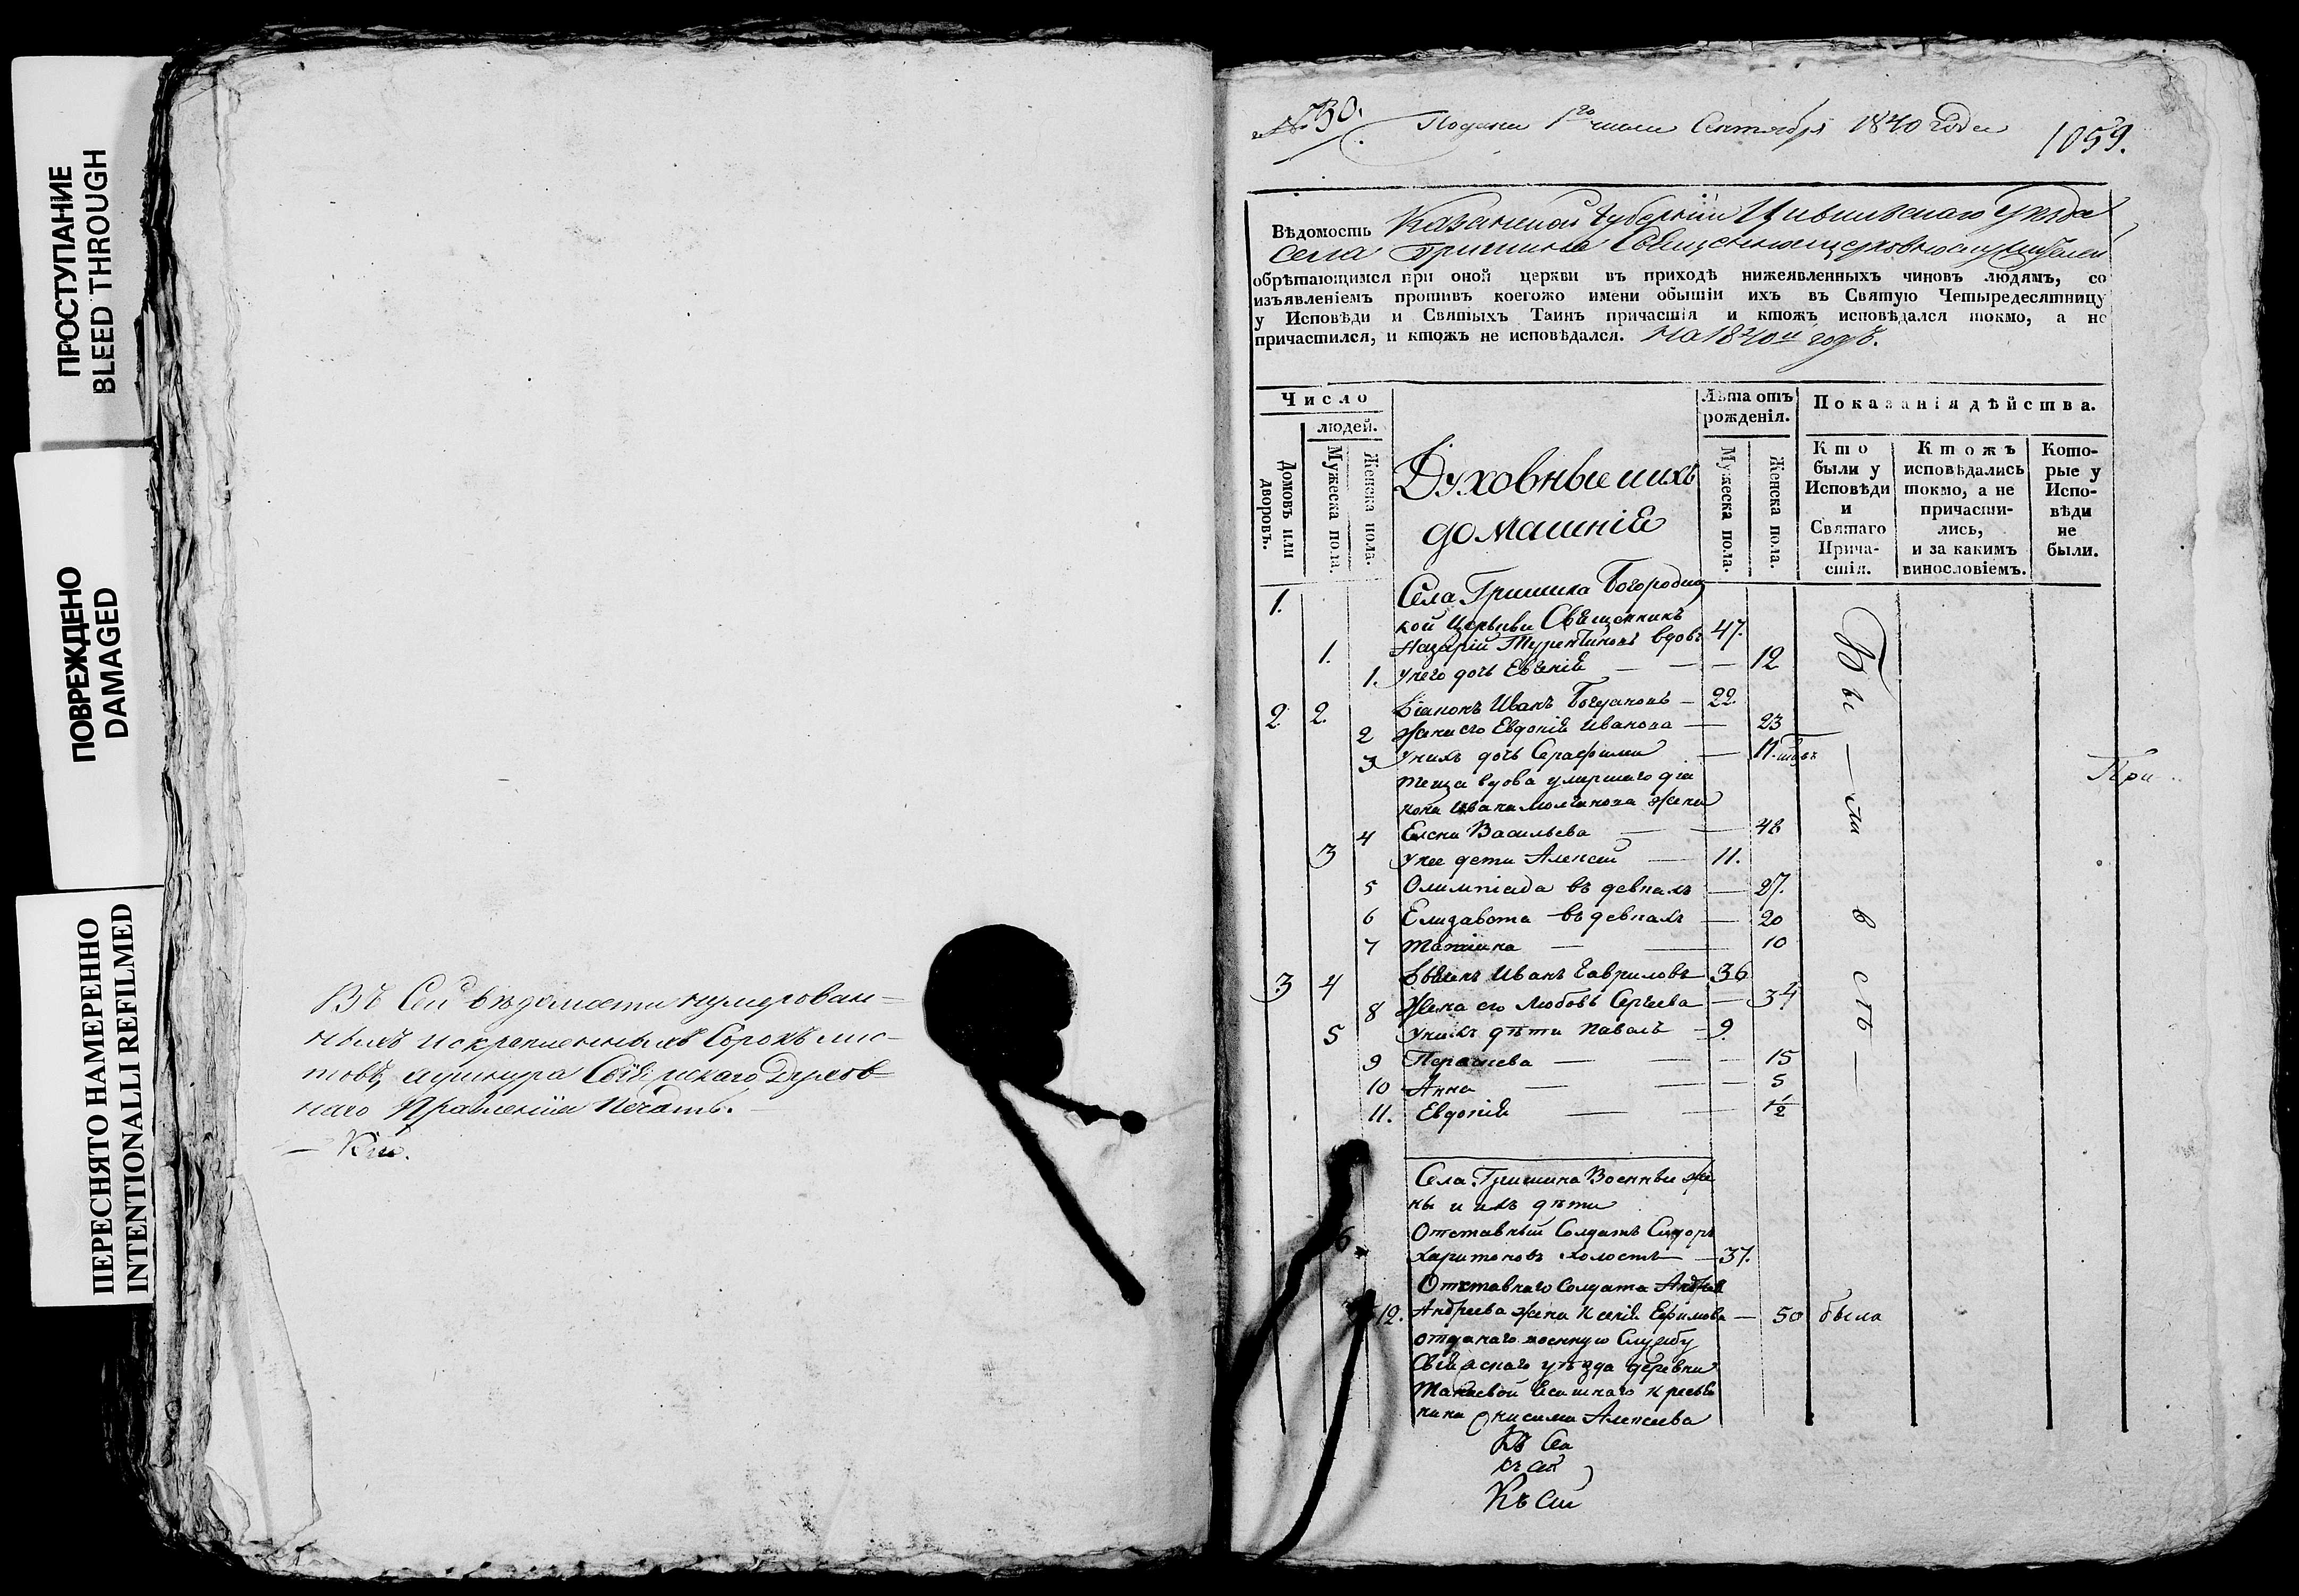 ПРОСТУПАНИЕ
BLEED THROUGH
ПОВРЕЖДЕНО
DAMAGED
ПЕРЕСНЯТО НАМЕРЕННО
INTENTIONALLI REFILMED
Въ Сей вѣдомости нумерован=
ныхъ и скрепленныхъ Сорокъ лис-
товъ, Духов=
наго Правления Печать.
№30.
Подана 1го числа Сентября 1840 года
1059.
Вѣдомость Казанской Губернiи Цивильскаго Уѣзда
Села Гришина
обрѣтающимся при оной церкви въ приходѣ нижеявленныхъ чиновъ людямъ, со
изъявленiемъ противъ коегожо имени обытiи ихъ въ Святую Четыредесятницу
у Исповѣди и Святыхъ Таинъ причастiя и ктожъ исповѣдался токмо, а не
причастился, и ктожъ не исповѣдался. На 1840й годъ.
Число
людей.
Домовъ или дворовъ.
Мужеска пола.
Женска пола.
Духовные и ихъ
домашнiе
Лѣта отъ
рожденiя.
Мужеска пола.
Женска пола.
Показанiя дѣйства.
Кто
были у
Исповѣди
и
Святаго
Прича-
стiя.
Ктожъ
исповѣдались
токмо, а не
причасти-
лись,
и за какимъ
винословiемъ.
Кото-
рые у
Испо-
вѣди
не
были.
1. Села Гришина Богородиц
кой Церькви Священникъ
1. Назарiй вдовъ 47.
1. у него дочь Евгенiя — — — 12
2 2. Дiаконъ Иванъ — 22.
2 жена его Евдокiя Иванова — 23
3 у нихъ дочь Серафима — 11.
теща вдова умершаго дiа
кона Ивана Молчанова жена
4 Елена Васильева — — 48
3 у нее дети Алексей — 11.
5 Олимпiада въ девкахъ — 27.
6 Елизавета въ девкахъ — 20
7 Татiана — — 10
3 4 Иванъ Гавриловъ 36
8 Жена его Любовь Сергеева — 34
5 у нихъ дѣти Павелъ — 9.
9 Парасковья — — — 15
10 Анна — — — 5
11. Евдокiя — — 1/2
Бы — ли
всѣ —
При
Села Гришина Военные же
ны и ихъ дѣти
Отставный Солдатъ Сидоръ
6. Харитоновъ холостъ — 37.
Отставнаго Солдата Андрея
12. Андреева жена Ксенiя Ефимова — 50 была
отданаго военную Службу
Свiяжскаго уѣзда деревни
крестья
нина Онисима Алексеева
Къ Сей
къ сей
Къ Сей